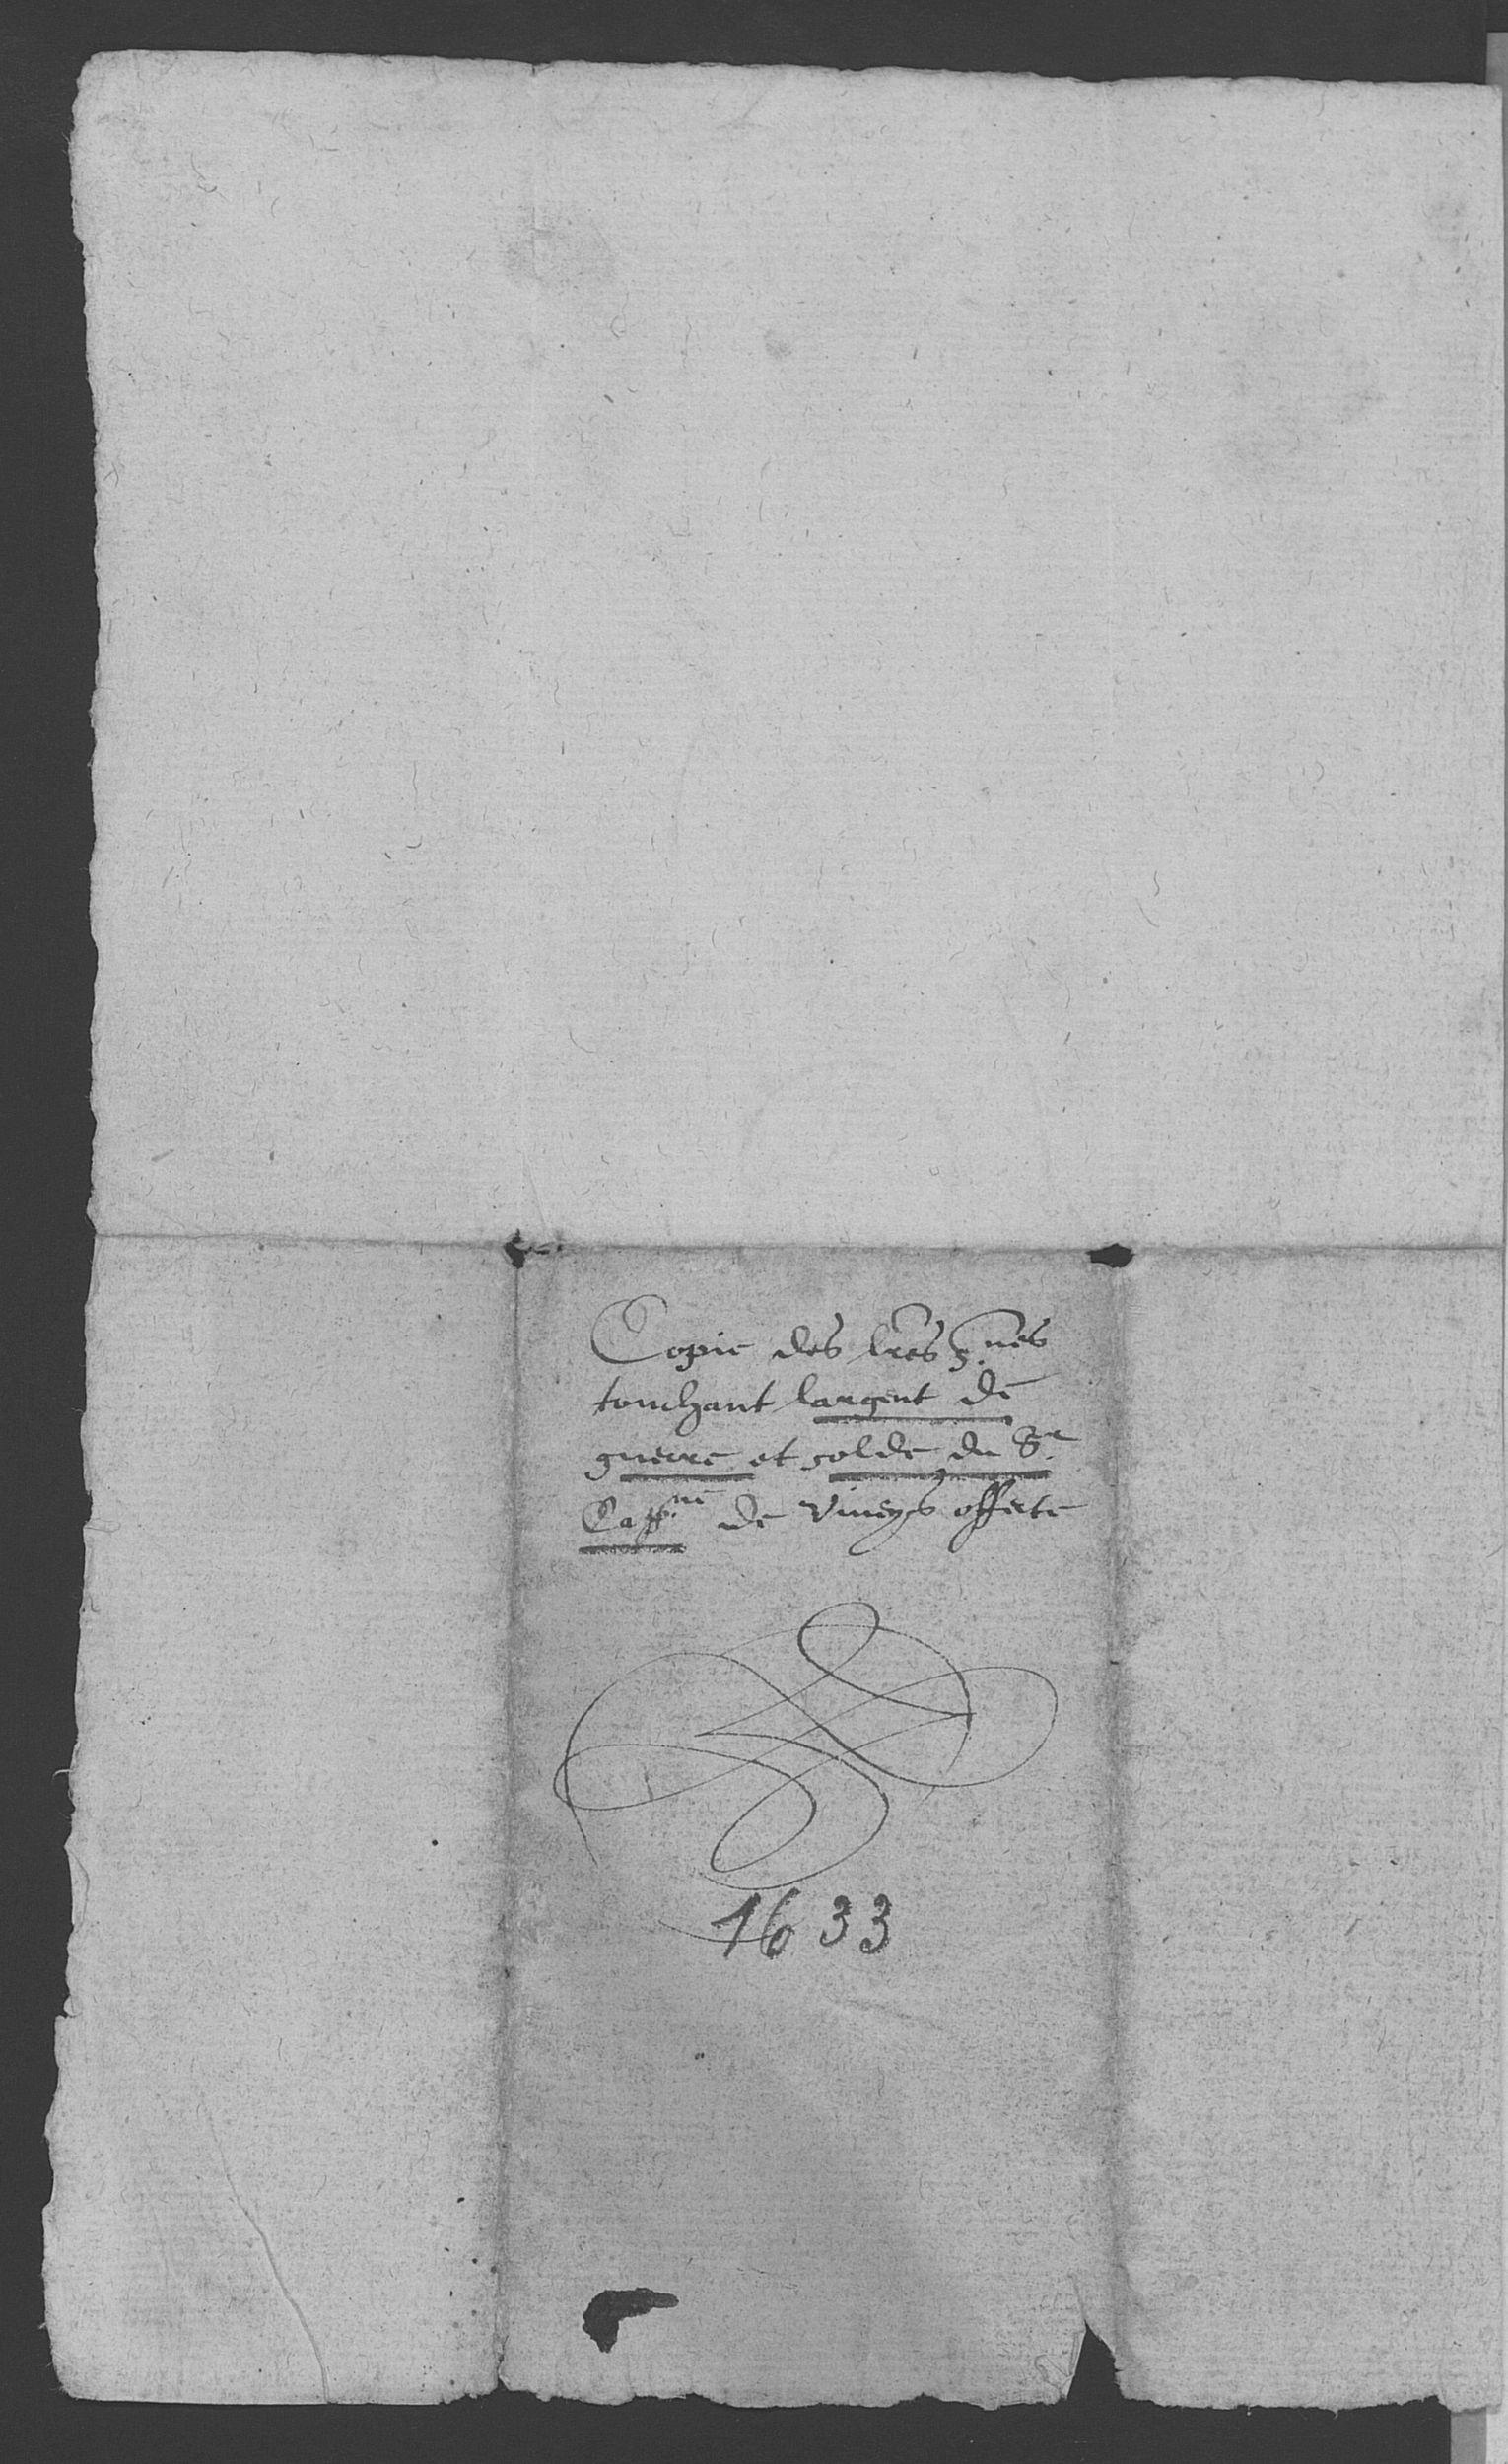 Copie des lres
touchant largent de
guerre et solde du Sr.
Cappne de Vineys offerte
1633